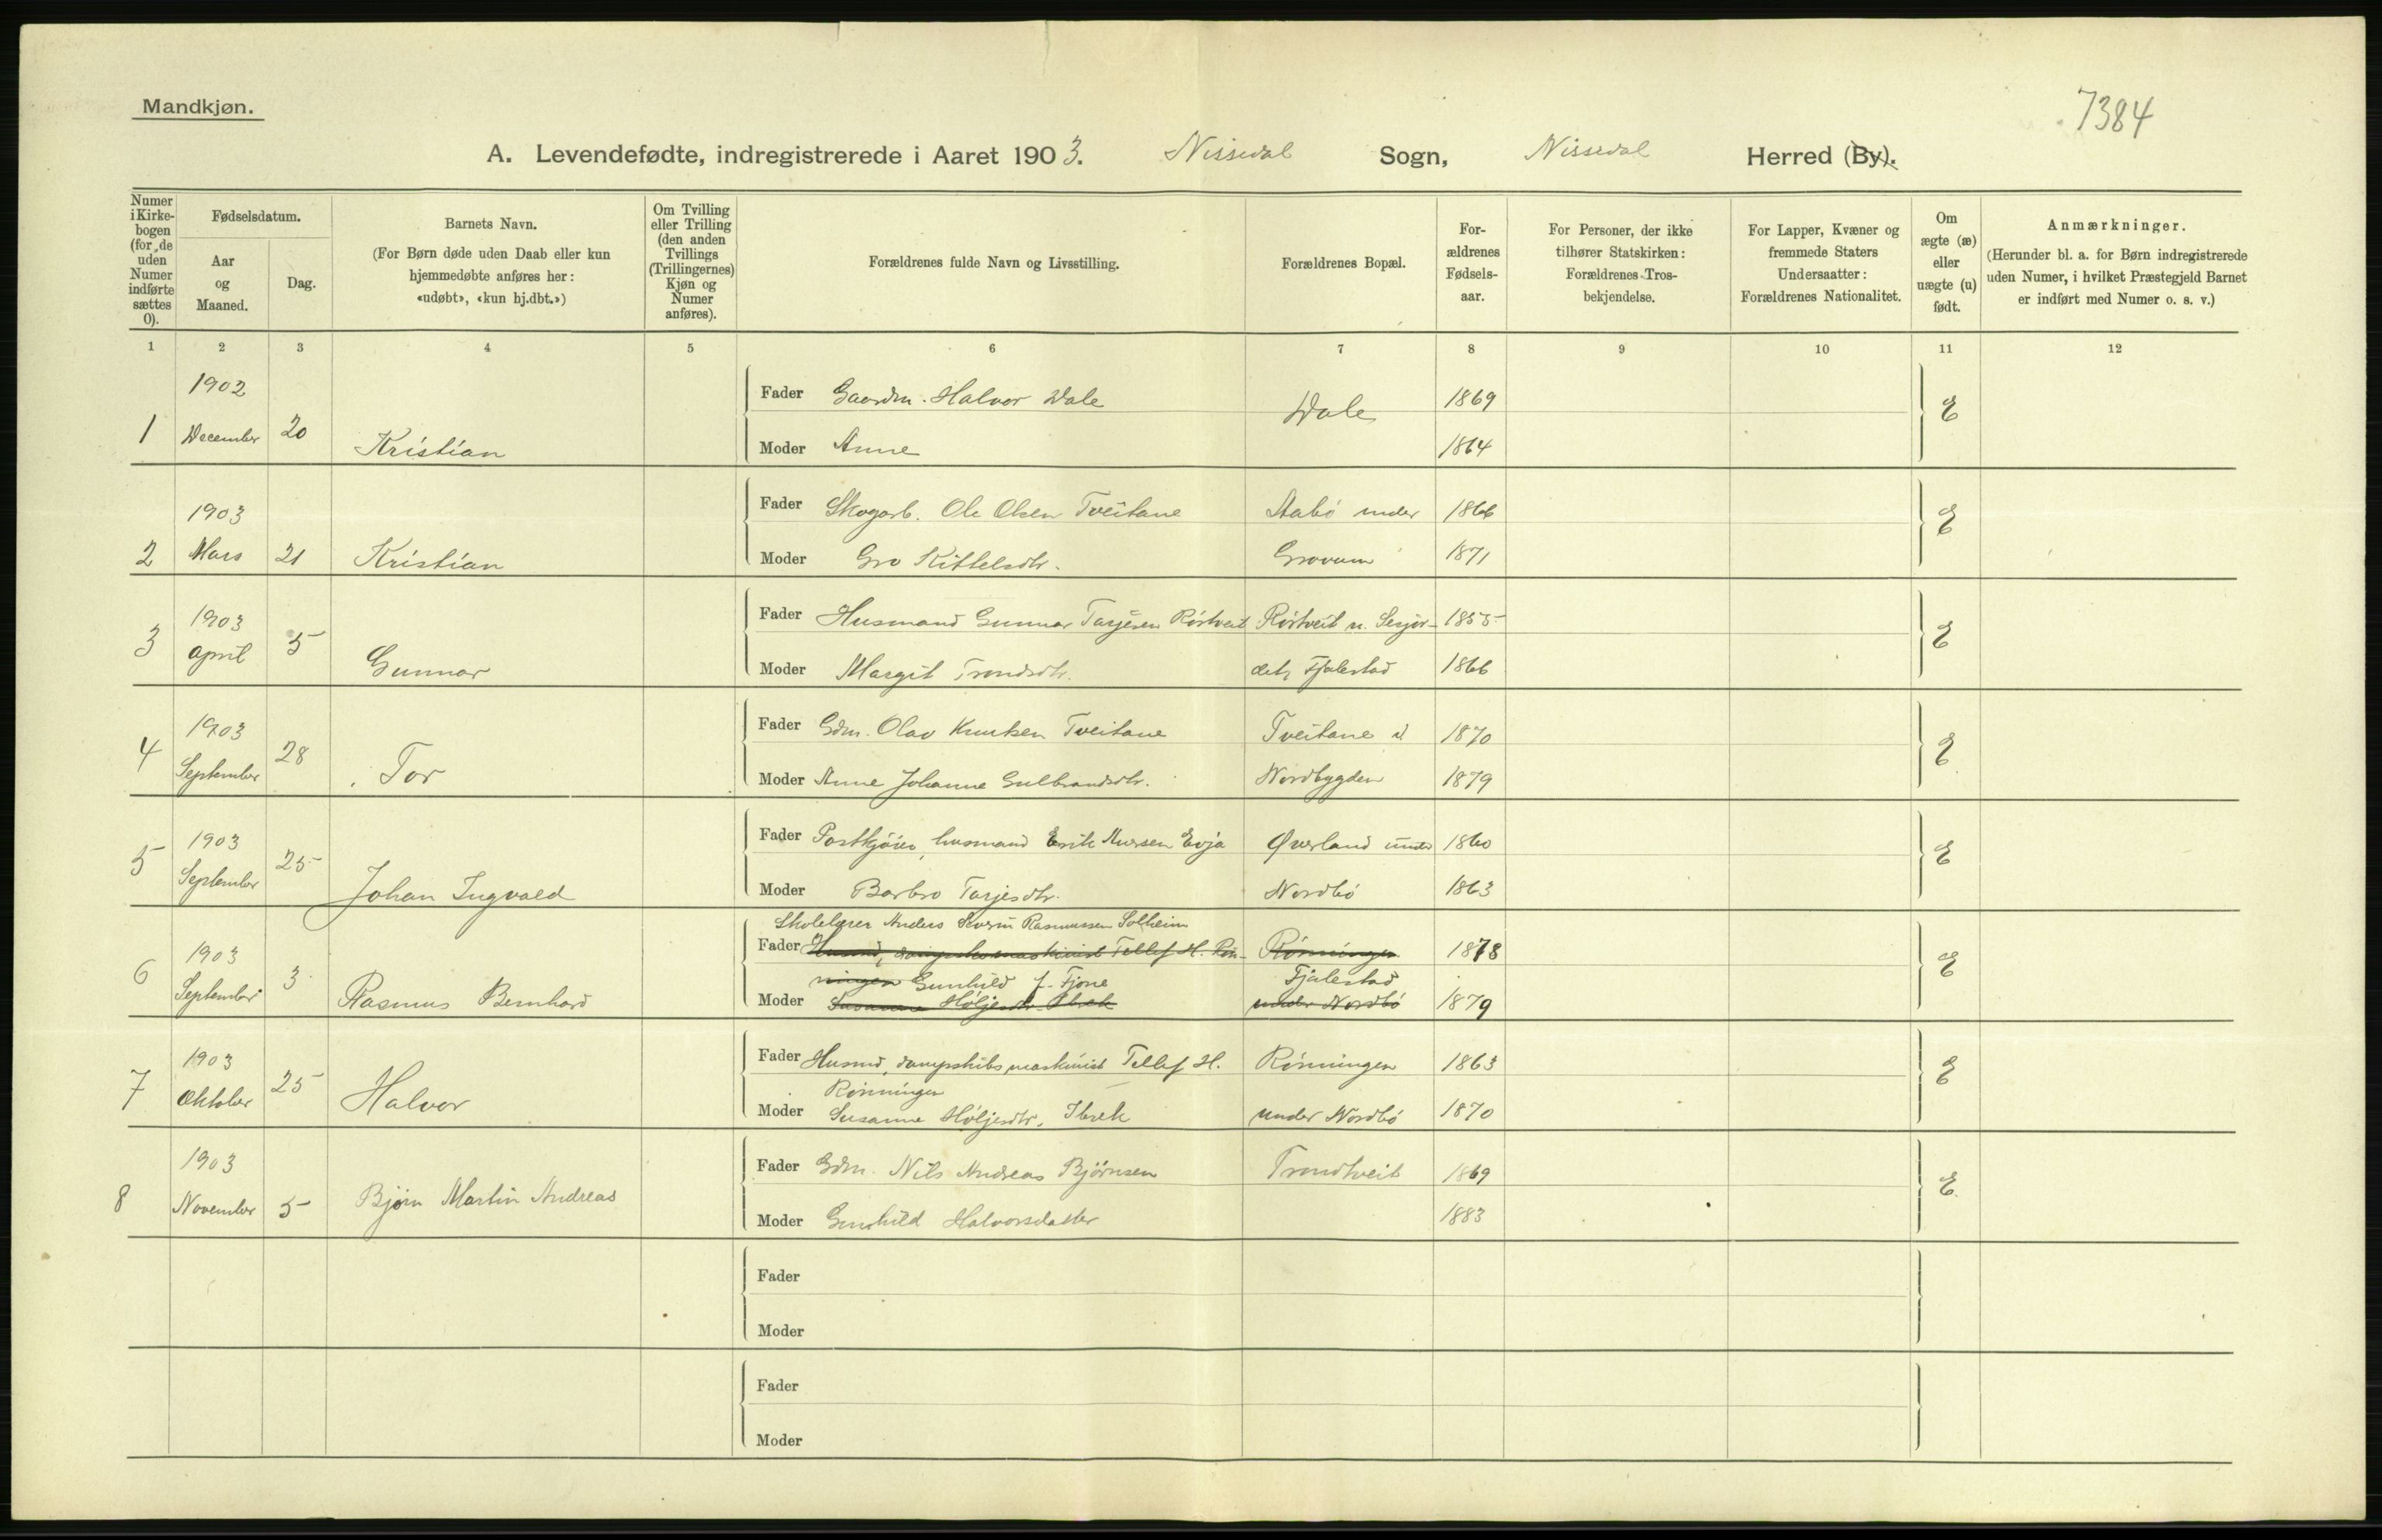 Mandkjøn.
7384
A. Levendefødte, indregistrerede i Aaret 1903. Nissedal Sogn, Nissedal Herred (By).
Numer i Kirke-bogen (for de uden Numer indførte sættes 0).
Fødselsdatum.
Aar og Maaned.
Dag.
Barnets Navn.
(For Børn døde uden Daab eller kun hjemmedøbte anføres her: «udøbt», «kun hj.dbt.»)
Om Tvilling eller Trilling (den anden Tvillings (Trillingernes) Kjøn og Numer anføres).
Forældrenes fulde Navn og Livsstilling.
Forældrenes Bopæl.
For-ældrenes Fødsels-aar.
For Personer, der ikke tilhører Statskirken: Forældrenes Tros-bekjendelse.
For Lapper, Kvæner og fremmede Staters Undersaatter: Forældrenes Nationalitet.
Om ægte (æ) eller uægte (u) født.
Anmærkninger.
(Herunder bl. a. for Børn indregistrerede uden Numer, i hvilket Præstegjeld Barnet er indført med Numer o. s. v.)
1 2 3 4 5 6 7 8 9 10 11 12
1902
Fader Gaardm. Halvor Dale Dale 1869 E
1 December 20 Kristian
Moder Anne 1864
1903
Fader Skogarb. Ole Olsen Tveitane Stabö under 1866 E
2 Mars 21 Kristian
Moder Gro Kittelsdtr. Grovum 1871
1903
Fader Husmand Gunnar Tarjesen Rörtveit Rörtveit u. 1855 E
3 April 5 Gunnar
Moder Margit Trondsdtr. Fjalestad 1866
1903
Fader Gdm. Olav Knutsen Tveitane Tveitane i 1870 E
4 September 28 Tor
Moder Anne Johanne Gulbrandsdtr. Nordbygden 1879
1903
Fader Postkjörer, husmand Erik Aversen Evja Øverland under 1860 E
5 September 25 Johan Ingvald
Moder Barbro Tarjesdtr. Nordbö 1863
Skolelærer Anders Severin Rasmussen Solheim
1903
Fader Husmd, dampskibsmaskinist Tellef H. Rön- Rönningen 1878 E
ningen Gunhild f. Fjone Fjalestad
6 September 3 Rasmus Bernhard
Moder Susanne Höljesdtr. Ibrek under Nordbö 1879
1903
Fader Husmd, dampskibsmaskinist Tellef H. Rönningen 1863 E
Rönningen
7 Oktober 25 Halvor
Moder Susanne Höljesdtr. Ibrek under Nordbö 1870
1903
Fader Gdm. Nils Andreas Björnsen Trondtveit 1869 E.
8 November 5 Bjørn Martin Andreas
Moder Gunhild Halvorsdatter 1883
Fader
Moder
Fader
Moder